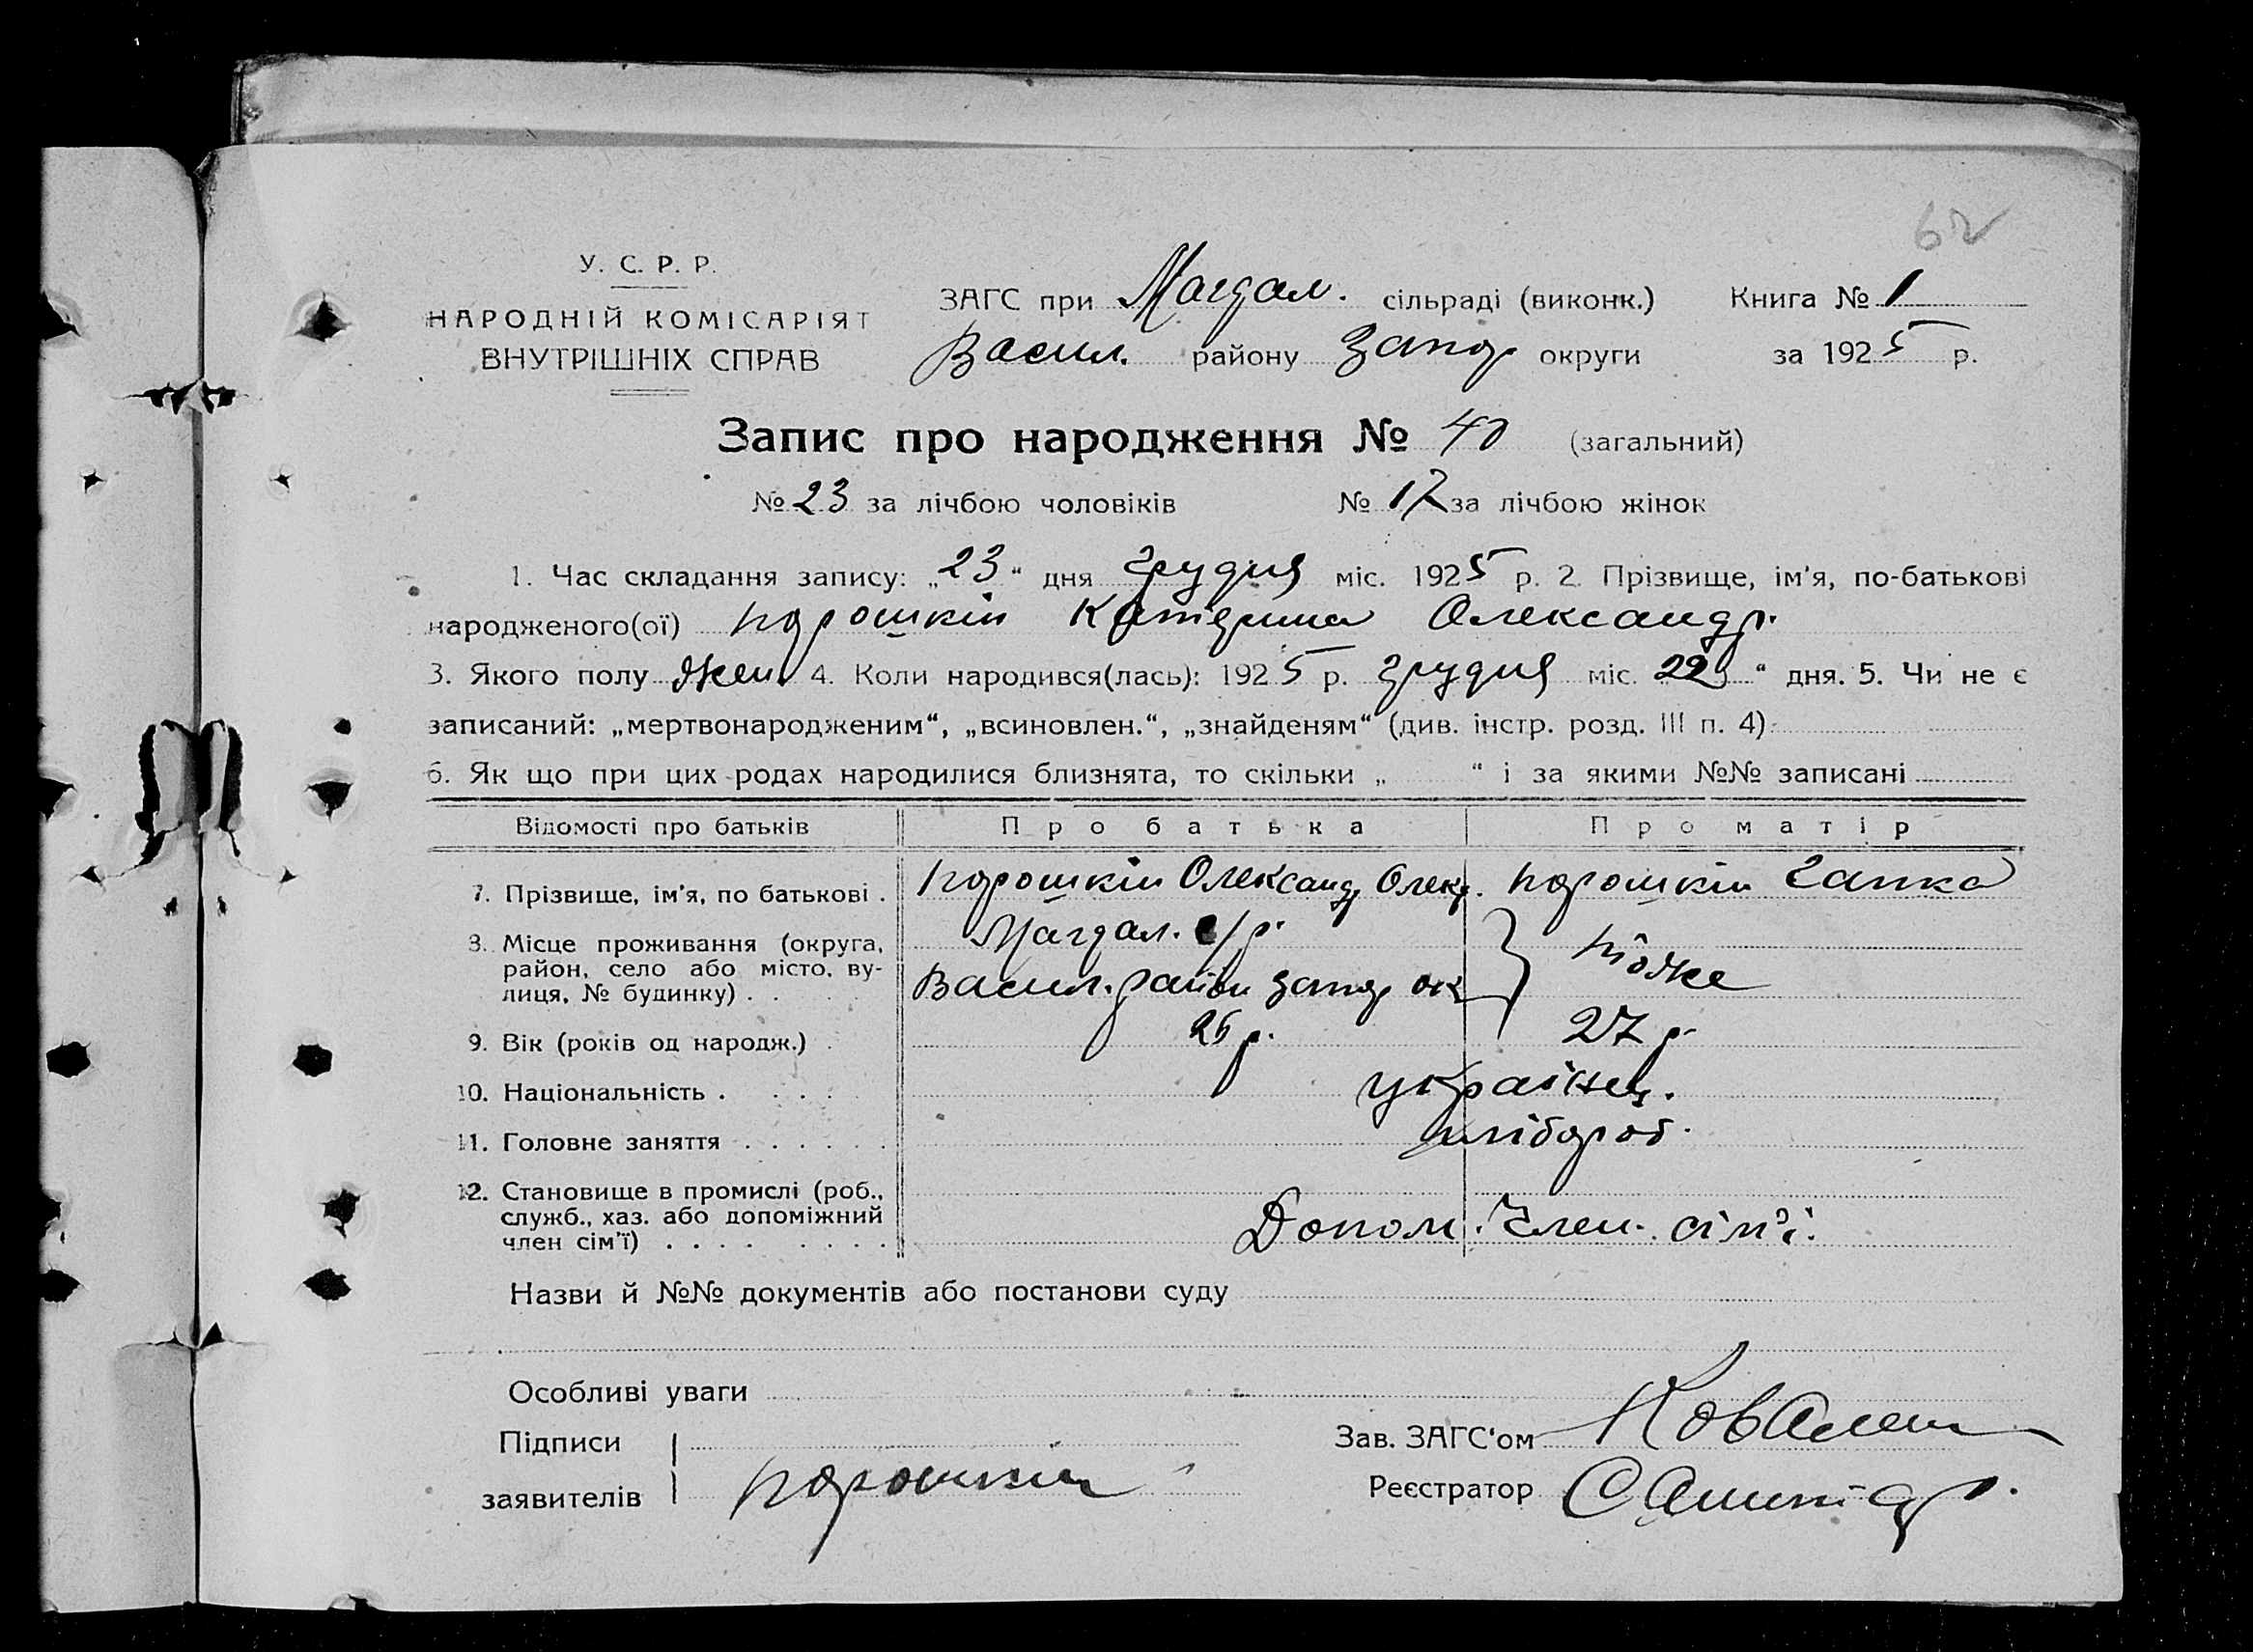 62
У. С. Р. Р.
НАРОДНІЙ КОМІСАРІЯТ
ВНУТРІШНІХ СПРАВ
ЗАГС при Магдал. сільраді (виконк.) Книга № 1
Васил. району Запор округи за 1925 р.
Запис про народження № 40 (загальний)
№ 23 за лічбою чоловіків № 17 за лічбою жінок
1. Час складання запису: „23“ дня грудня міс. 1925 р. 2. Прізвище, ім’я, по-батькові
народженого(ої) Порошкін Катерина Олександр.
3. Якого полу жен. 4. Коли народився(лась): 1925 р. грудня міс. 22 “ дня. 5. Чи не є
записаний: „мертвонародженим“, „всиновлен.“, „знайденям“ (див. інстр. розд. III п. 4)
6. Як що при цих родах народилися близнята, то скільки „ “ і за якими №№ записані
Відомості про батьків Про батька Про матір
7. Прізвище, ім’я, по батькові . Порошкін Олександр Олекс. Порошкін Гапка
8. Місце проживання (округа, Магдал. с/р.
район, село або місто, ву- Васил. район Запор ок } Тоже
лиця, № будинку) . .
9. Вік (років од народж.) . 26 р. 27 р.
10. Національність . . . . українец.
11. Головне заняття . . . . . . хлібороб.
12. Становище в промислі (роб.,
служб., хаз. або допоміжний
член сім’ї) . . . . . . . . Допом. Член. сім’ї.
Назви й №№ документів або постанови суду
Особливі уваги
Підписи Зав. ЗАГС‘ом
заявителів Порошкін Реєстратор